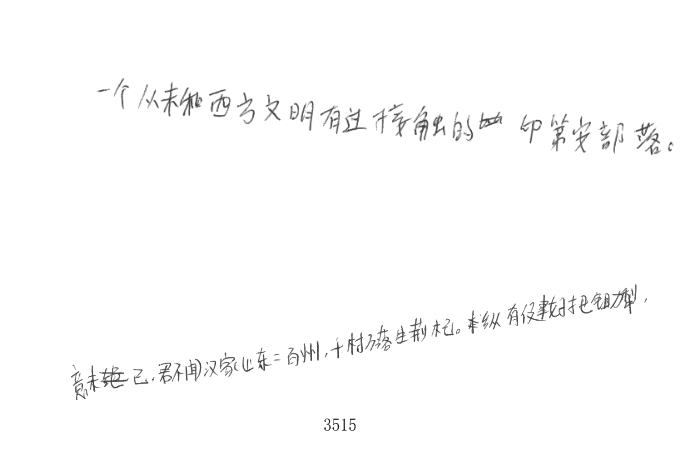 一个从未和西方文明有过接触的印第安部落。
意未已，君不闻汉家山东二百州，千村万落生荆杞。纵有健妇把锄犁，
3515